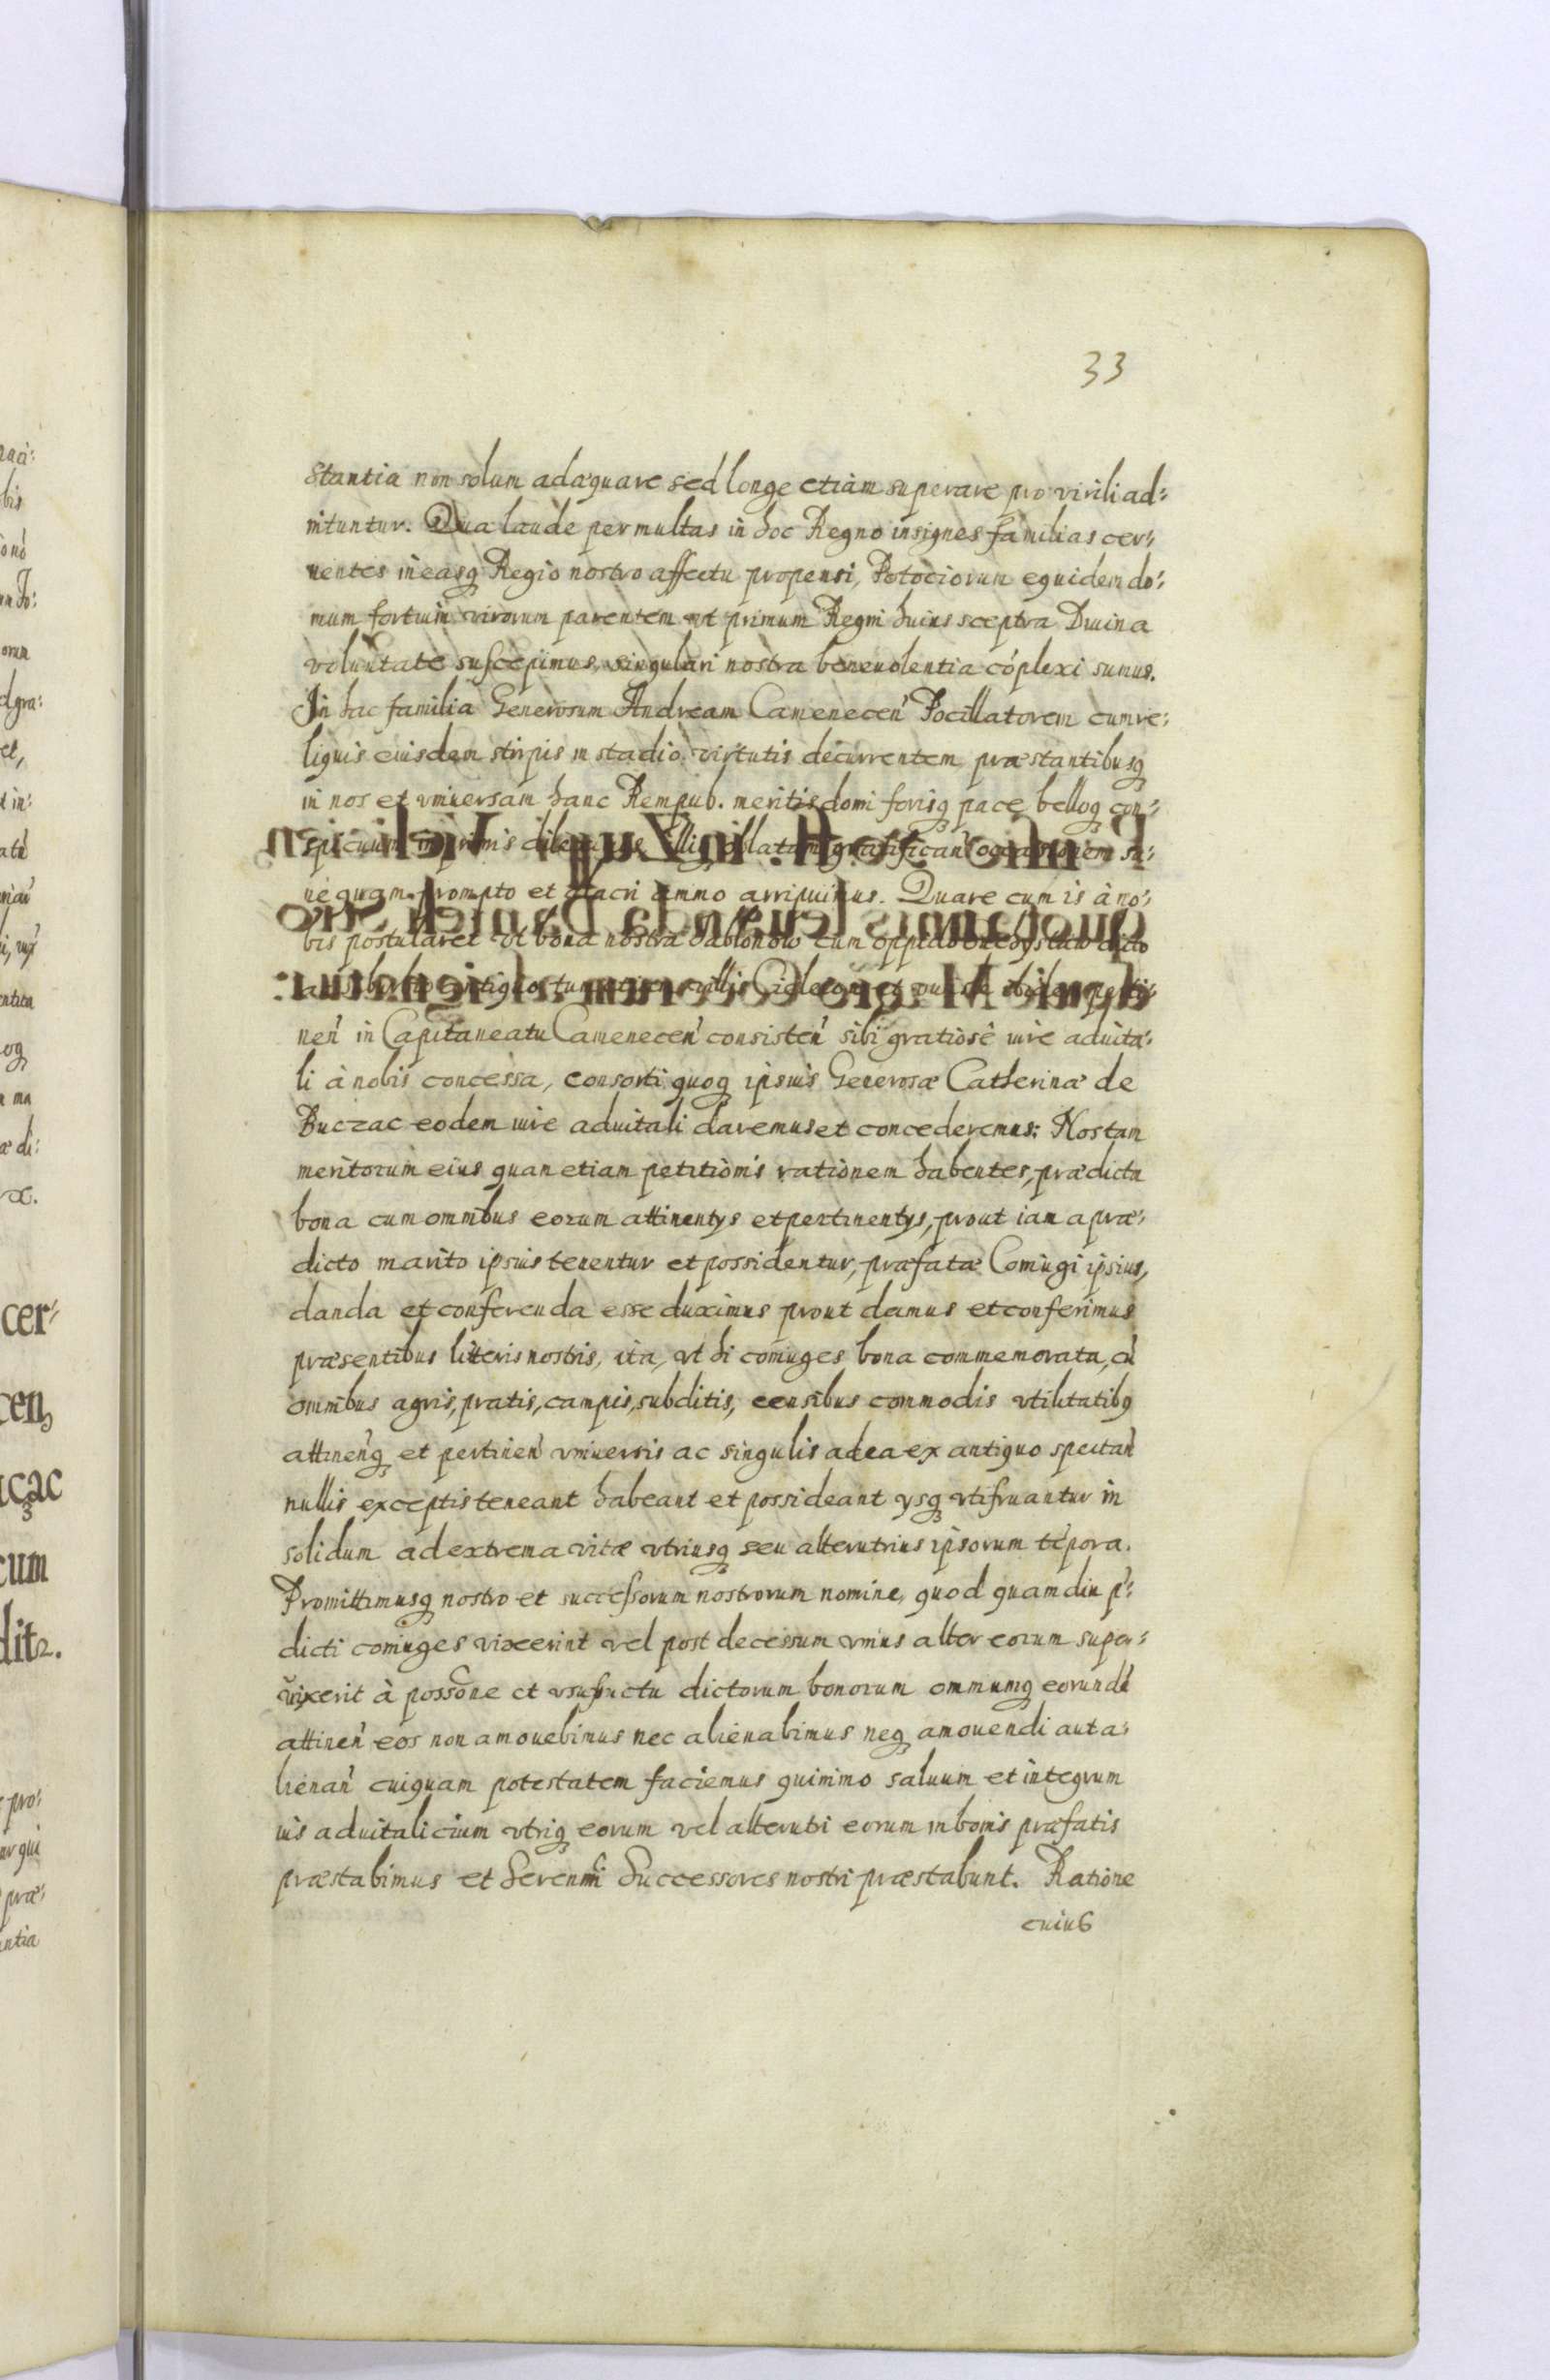 33
stantia non solum adæquare sed longe etiam superare pro virili ad:
nituntur. Qua laude permultas in hoc Regno insignes familias cer:
nentes in easq Regio nostro affectu propensi, Potociorum equidem do:
mum fortium virorum parentem ut primum Regni huius sceptra Diuina
voluntate suscepimus, singulari nostra beneuolentia cóplexi sumus.
In hac familia Generosum Andream Camenecen̄ Pocillatorem cum re:
liquis eiusdem stirpis in stadio virtutis decurrentem præstantibusq
in nos et vniuersam hanc Rempub. meritis domi forisq pace belloq con:
spicuum oblatam gratifican̄ occasionem sa:
ne quam prompto et alacri animo arripuimus. Quare cum is à no:
bis postularet vt bona nostra Jablonow cum oppido dicto
nen̄ in Capitaneatu Camenecen̄ consisten̄ sibi gratiosè iure aduita:
li à nobis concessa, consorti quoq ipsius Generosæ Catherinæ de
Buczac eodem iure aduitali daremus et concederemus: Nos tam
meritorum eius quam etiam petitionis rationem habentes, prædicta
bona cum omnibus eorum attinentys et pertinentys, prout iam a præ:
dicto marito ipsius tenentur et possidentur, præfatæ Coniugi ipsius,
danda et conferenda esse duximus prout damus et conferimus
præsentibus literis nostris, ita, vt hi coniuges bona commemorata, cū
omnibus agris, pratis, campis, subditis, censibus commodis vtilitatibq
attinen̄q et pertinen̄ vniuersis ac singulis ad ea ex antiquo spectan̄
nullis exceptis teneant habeant et possideant ysq vtifruantur in
solidum ad extrema vitæ vtriusq seu alterutrius ipsorum tēpora.
Promittimusq nostro et successorum nostrorum nomine, quod quamdiu p̄:
dicti coniuges vixerint vel post decessum vnius alter eorum super:
vixerit à possōne et vsufructu dictorum bonorum omniumq eorundē
attinen̄ eos non amouebimus nec alienabimus neq amouendi aut a:
lienan̄ cuiquam potestatem faciemus quinimo saluum et integrum
ius aduitalicium vtriq eorum vel alterutri eorum in bonis præfatis
præstabimus et Serenmi Successores nostri præstabunt. Ratione
cuius